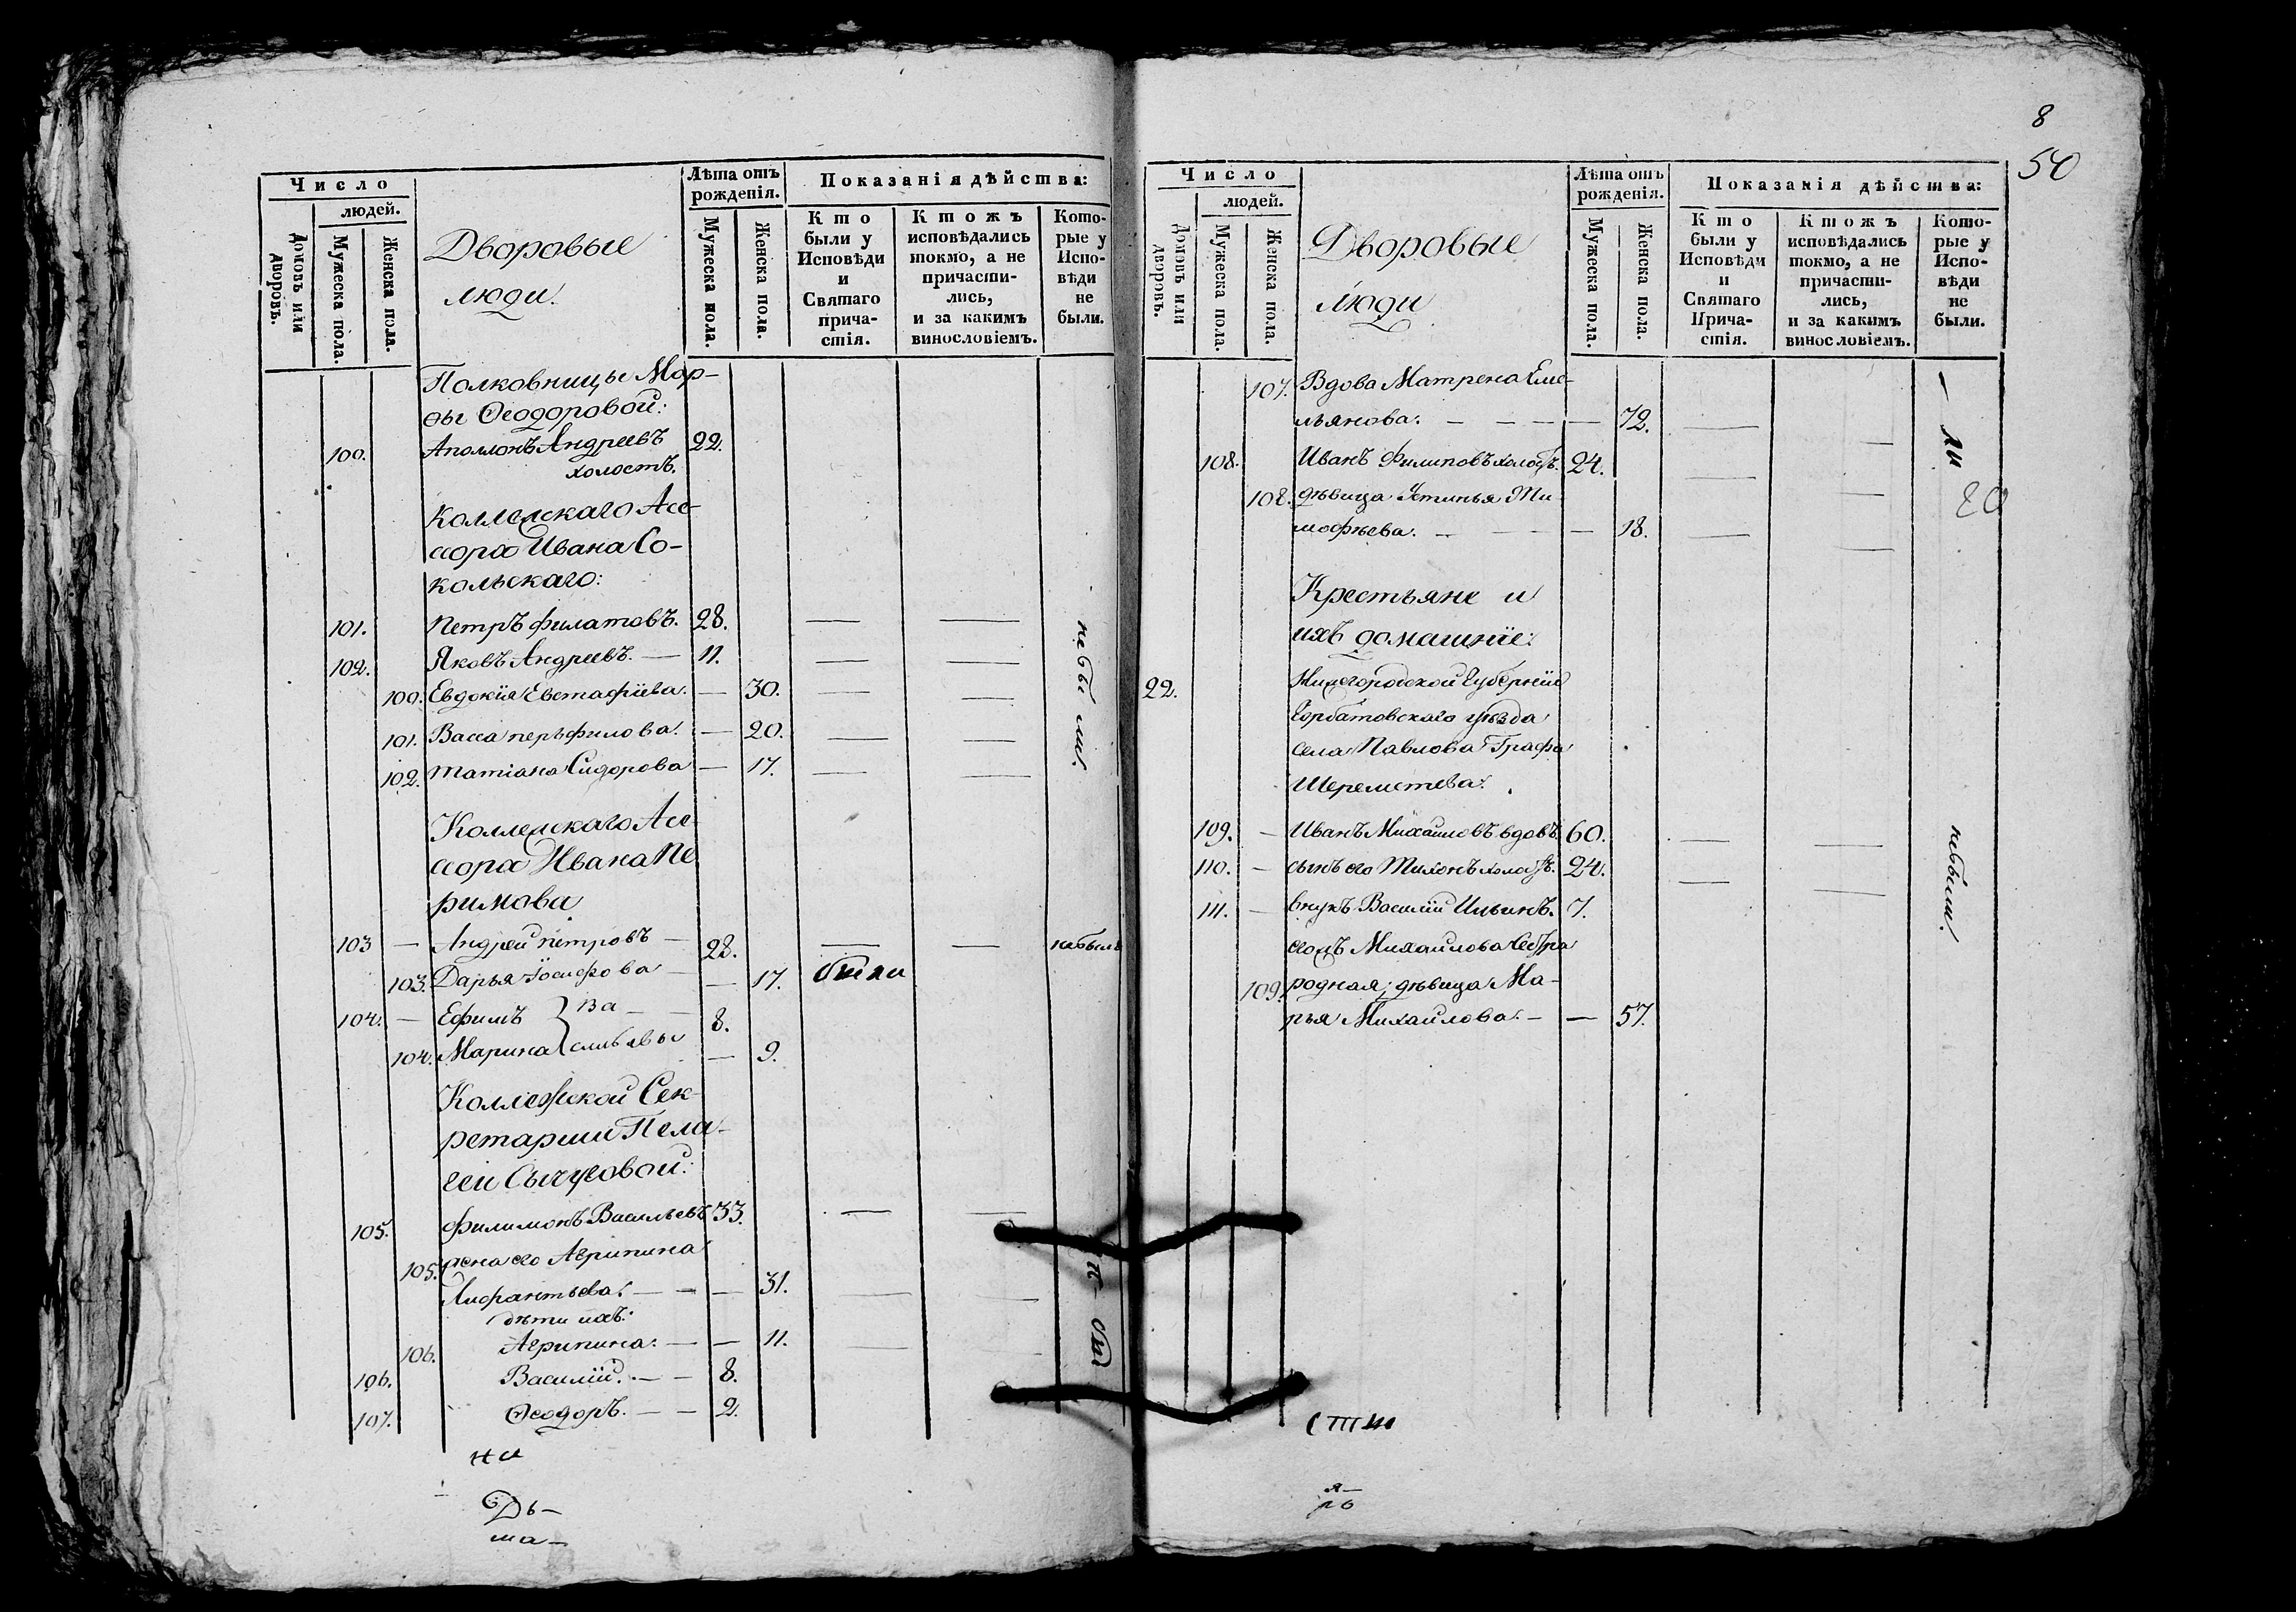 Число
людей.
Домовъ или дворовъ.
Мужеска пола.
Женска пола.
Дворовые
люди.
Лѣта отъ
рожденія.
Мужеска пола.
Женска пола.
Показанія дѣйства:
Кто
были у
Исповѣди
и
Святаго
прича-
стія.
Ктожъ
исповѣдались
токмо, а не
причасти-
лись,
и за какимъ
винословіемъ.
Кото-
рые у
Испо-
вѣди
не
были.
Полковницы Мар-
ѳы Ѳеодоровой:
100. Аполлонъ Андреевъ 22.
холостъ.
Коллежскаго Асе-
сора Ивана Со-
кольскаго:
101. Петръ Филатовъ. 28. — —
102. Яковъ Андреевъ. — 11. — —
100. Евдокія Евстафіева. — 30. — —
101. Васса перьфилова. — 20. — —
102. татіана Сидорова — 17. — —
небыли.
Коллежскаго Асе-
сора Ивана Пе
римова
103 — Андрей петровъ — 28. — — небылъ
103. Дарья Іосифова — — 17. были
104. — Ефимъ } Ва — — 8.
104. Марина } сильевы — 9.
Коллежской Сек-
ретарши Пела-
геи Сычуговой:
105. Филимонъ Васильевъ 33. — —
105. жена его Агрипина
Лифантьева: — — — 31. — —
дѣти ихъ:
106. Агрипина: — — 11. —
106. Василій. — — 8.
107. Ѳеодоръ. — — 2.
ни
Дь-
ма-
8
50
Число
людей.
Домовъ или дворовъ.
Мужеска пола.
Женска пола.
Дворовые
люди
Лѣта отъ
рожденія.
Мужеска пола.
Женска пола.
Показанія дѣйства:
Кто
были у
Исповѣди
и
Святаго
Прича-
стія.
Ктожъ
исповѣдались
токмо, а не
причасти-
лись,
и за какимъ
винословіемъ.
Кото-
рые у
Испо-
вѣди
не
были.
107. Вдова Матрена Еме-
льянова: — — — — 72. — —
— ли
108. Иванъ Филиповъ холостъ. 24. — —
108. дѣвица Устинья Ти-
мофѣева. — — — 18. — —
20
Крестьяне и
ихъ домашніе:
22. Нижегородской Губерніи
Горбатовскаго уѣзда
села Павлова Графа
Шереметева:
109. — Иванъ Михаиловъ вдовъ. 60. — —
110. — сынъ его Тихонъ холостъ. 24. — —
111. — внукъ Василій Ильинъ. 7.
егожъ Михаилова Сестра
109. родная; дѣвица Ма-
рья Михаилова. — — 57.
небыли.
сти
я-
ро